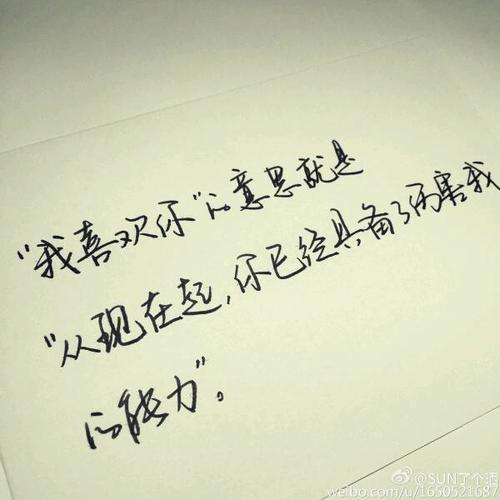 “我喜欢你”的意思就是
“从现在起,你已经具备了伤害我
的能力”。
@SUN了个
weibo.com/u/1650521687